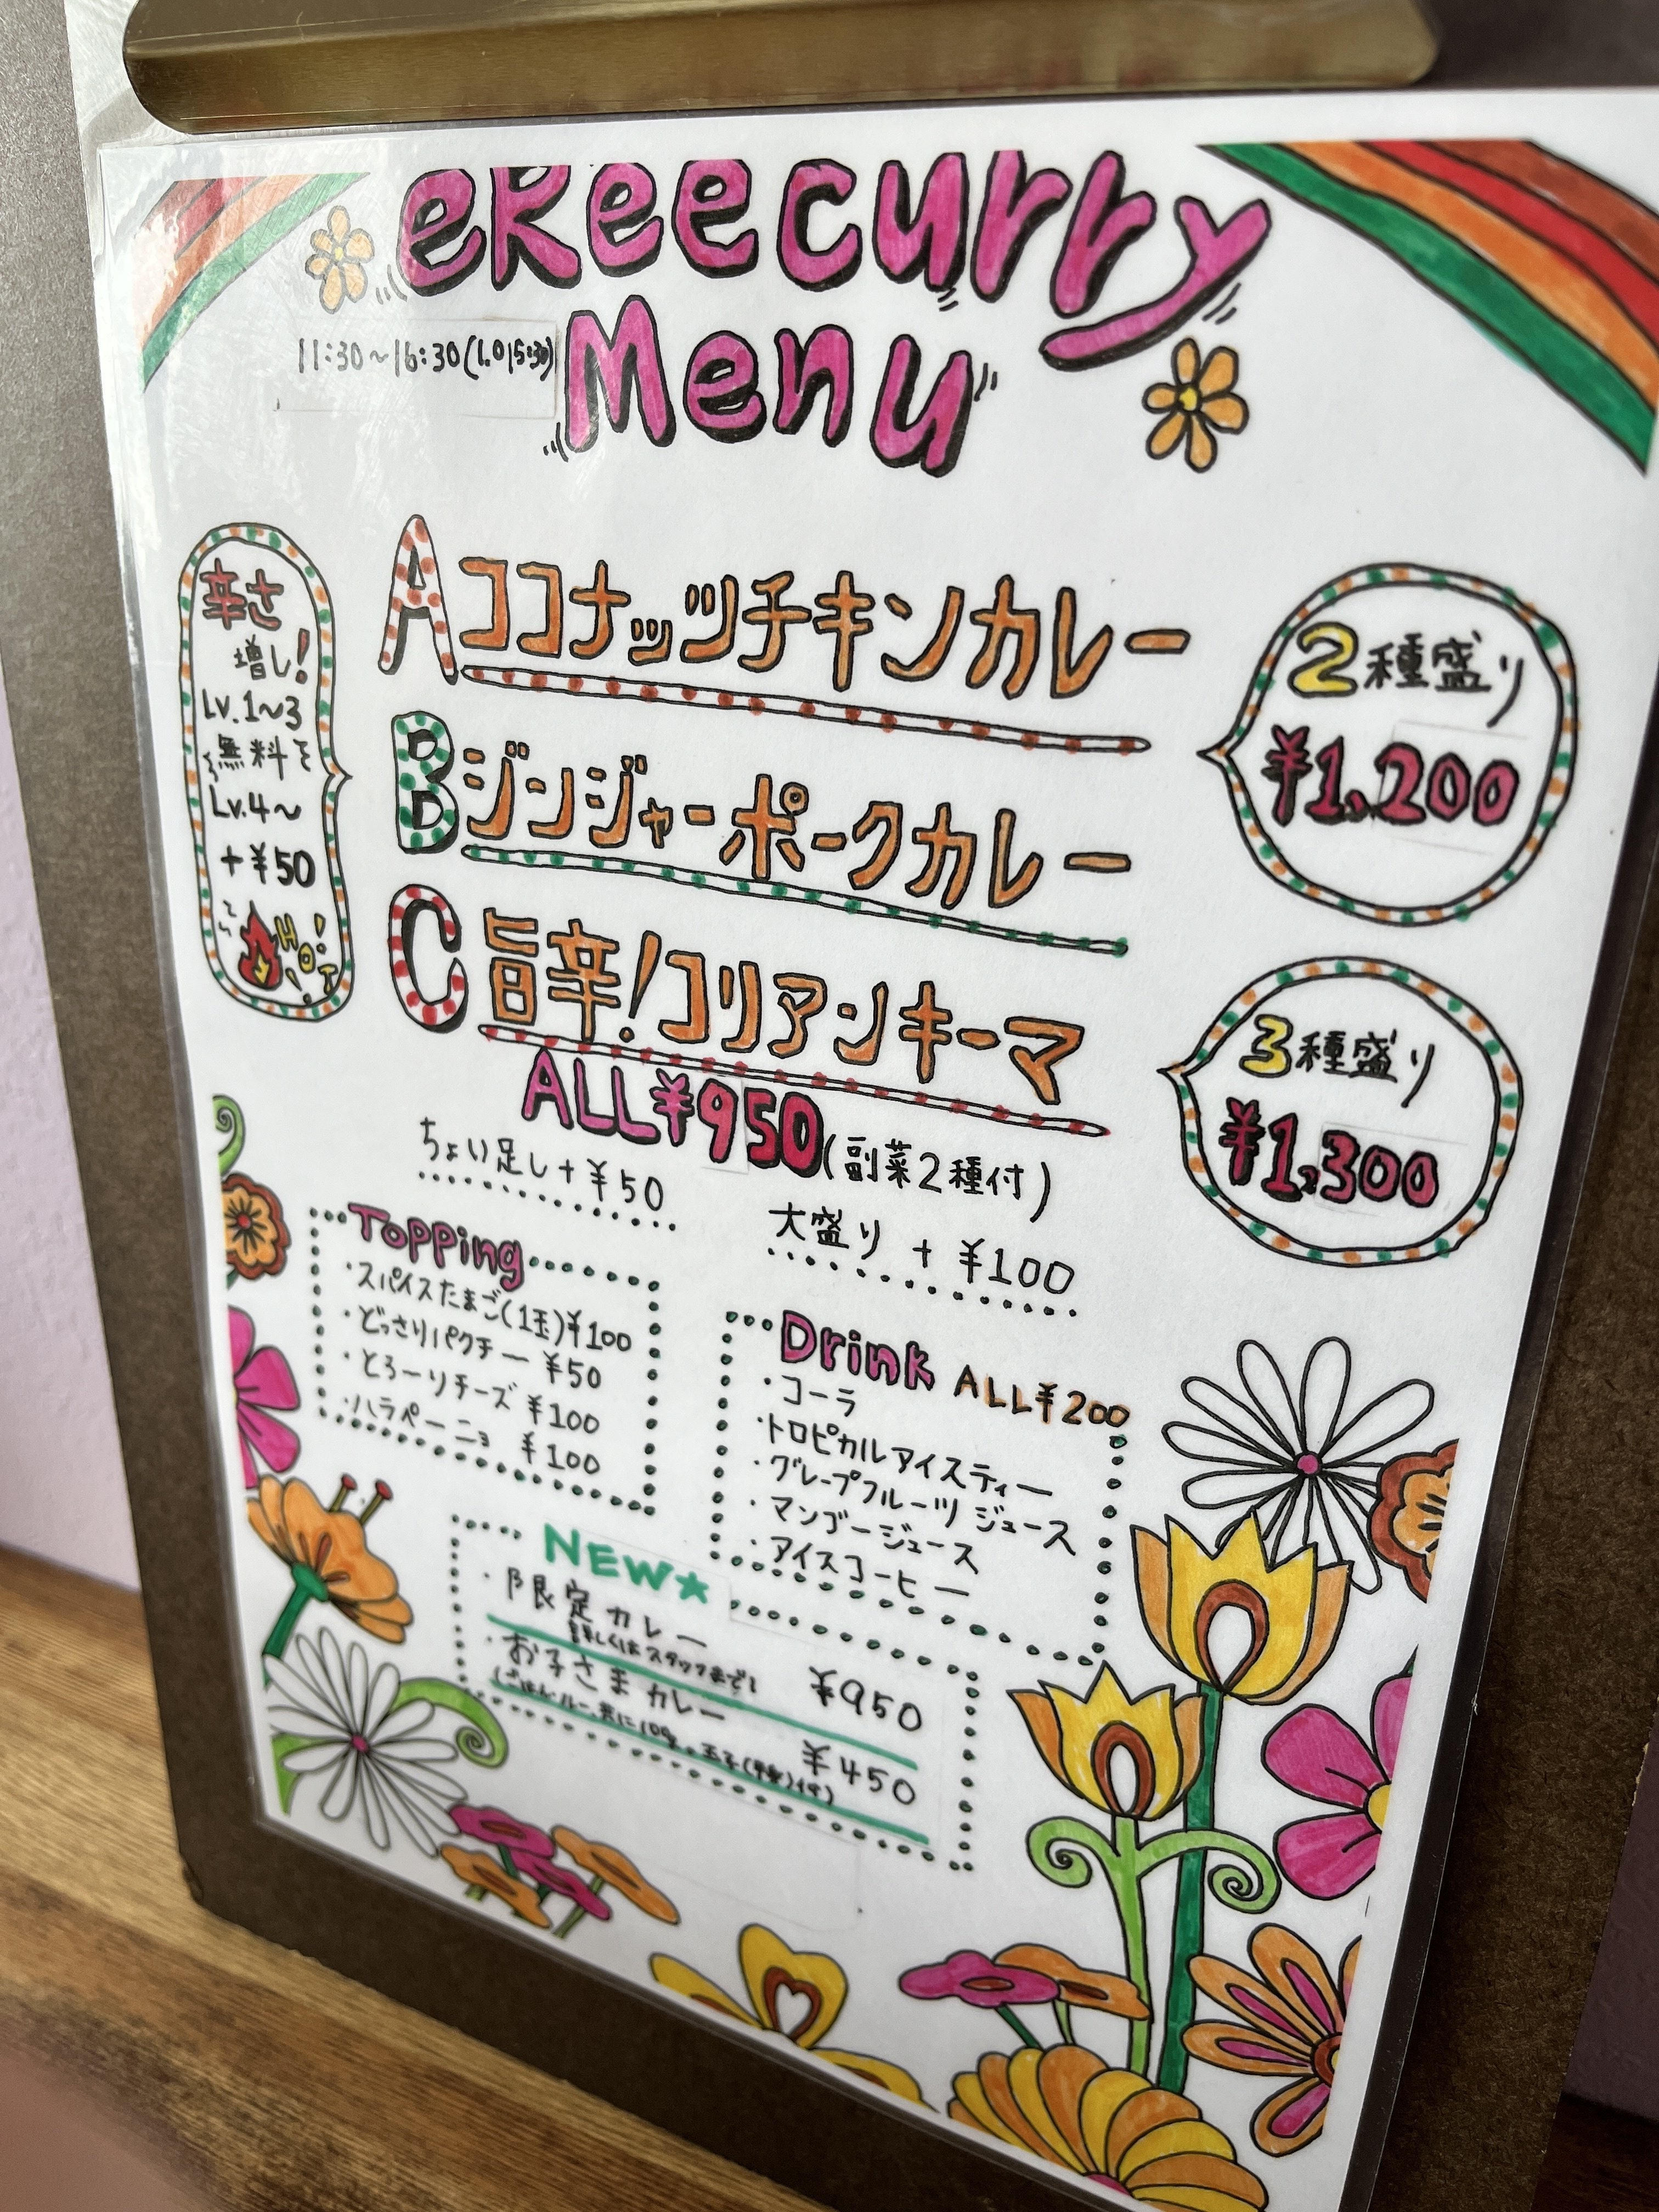 ekeecurry
Menu
11:30~16:30(L.O15:30)
辛さ
増し!
Lv.1~3
無料
Lv.4~
+¥50
HOT!
A ココナッツチキンカレー
B ジンジャーポークカレー
C 旨辛!コリアンキーマ
ALL¥950(副菜2種付)
2種盛り
¥1,200
3種盛り
¥1,300
ちょい足し+¥50
大盛り+¥100
Topping
・スパイスたまご(1玉)¥100
・どっさりパクチー ¥50
・とろーりチーズ ¥100
・ハラペーニョ ¥100
Drink ALL¥200
・コーラ
・トロピカルアイスティー
・グレープフルーツジュース
・マンゴージュース
・アイスコーヒー
NEW★
・限定カレー ¥950
詳しくはスタッフまで!
・お子さまカレー ¥450
(ごはん・ルー共に100g・玉子(半分)付)